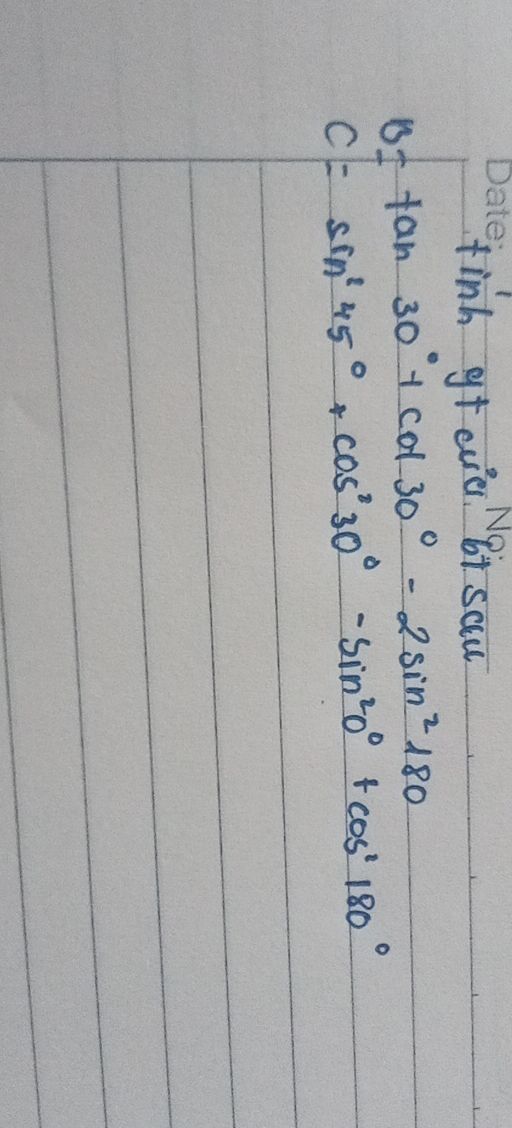 Date: No:
tính gt của bt sau
B = tan 30° + cot 30° - 2 sin² 180
C = sin² 45° + cos² 30° - sin² 0° + cos² 180°